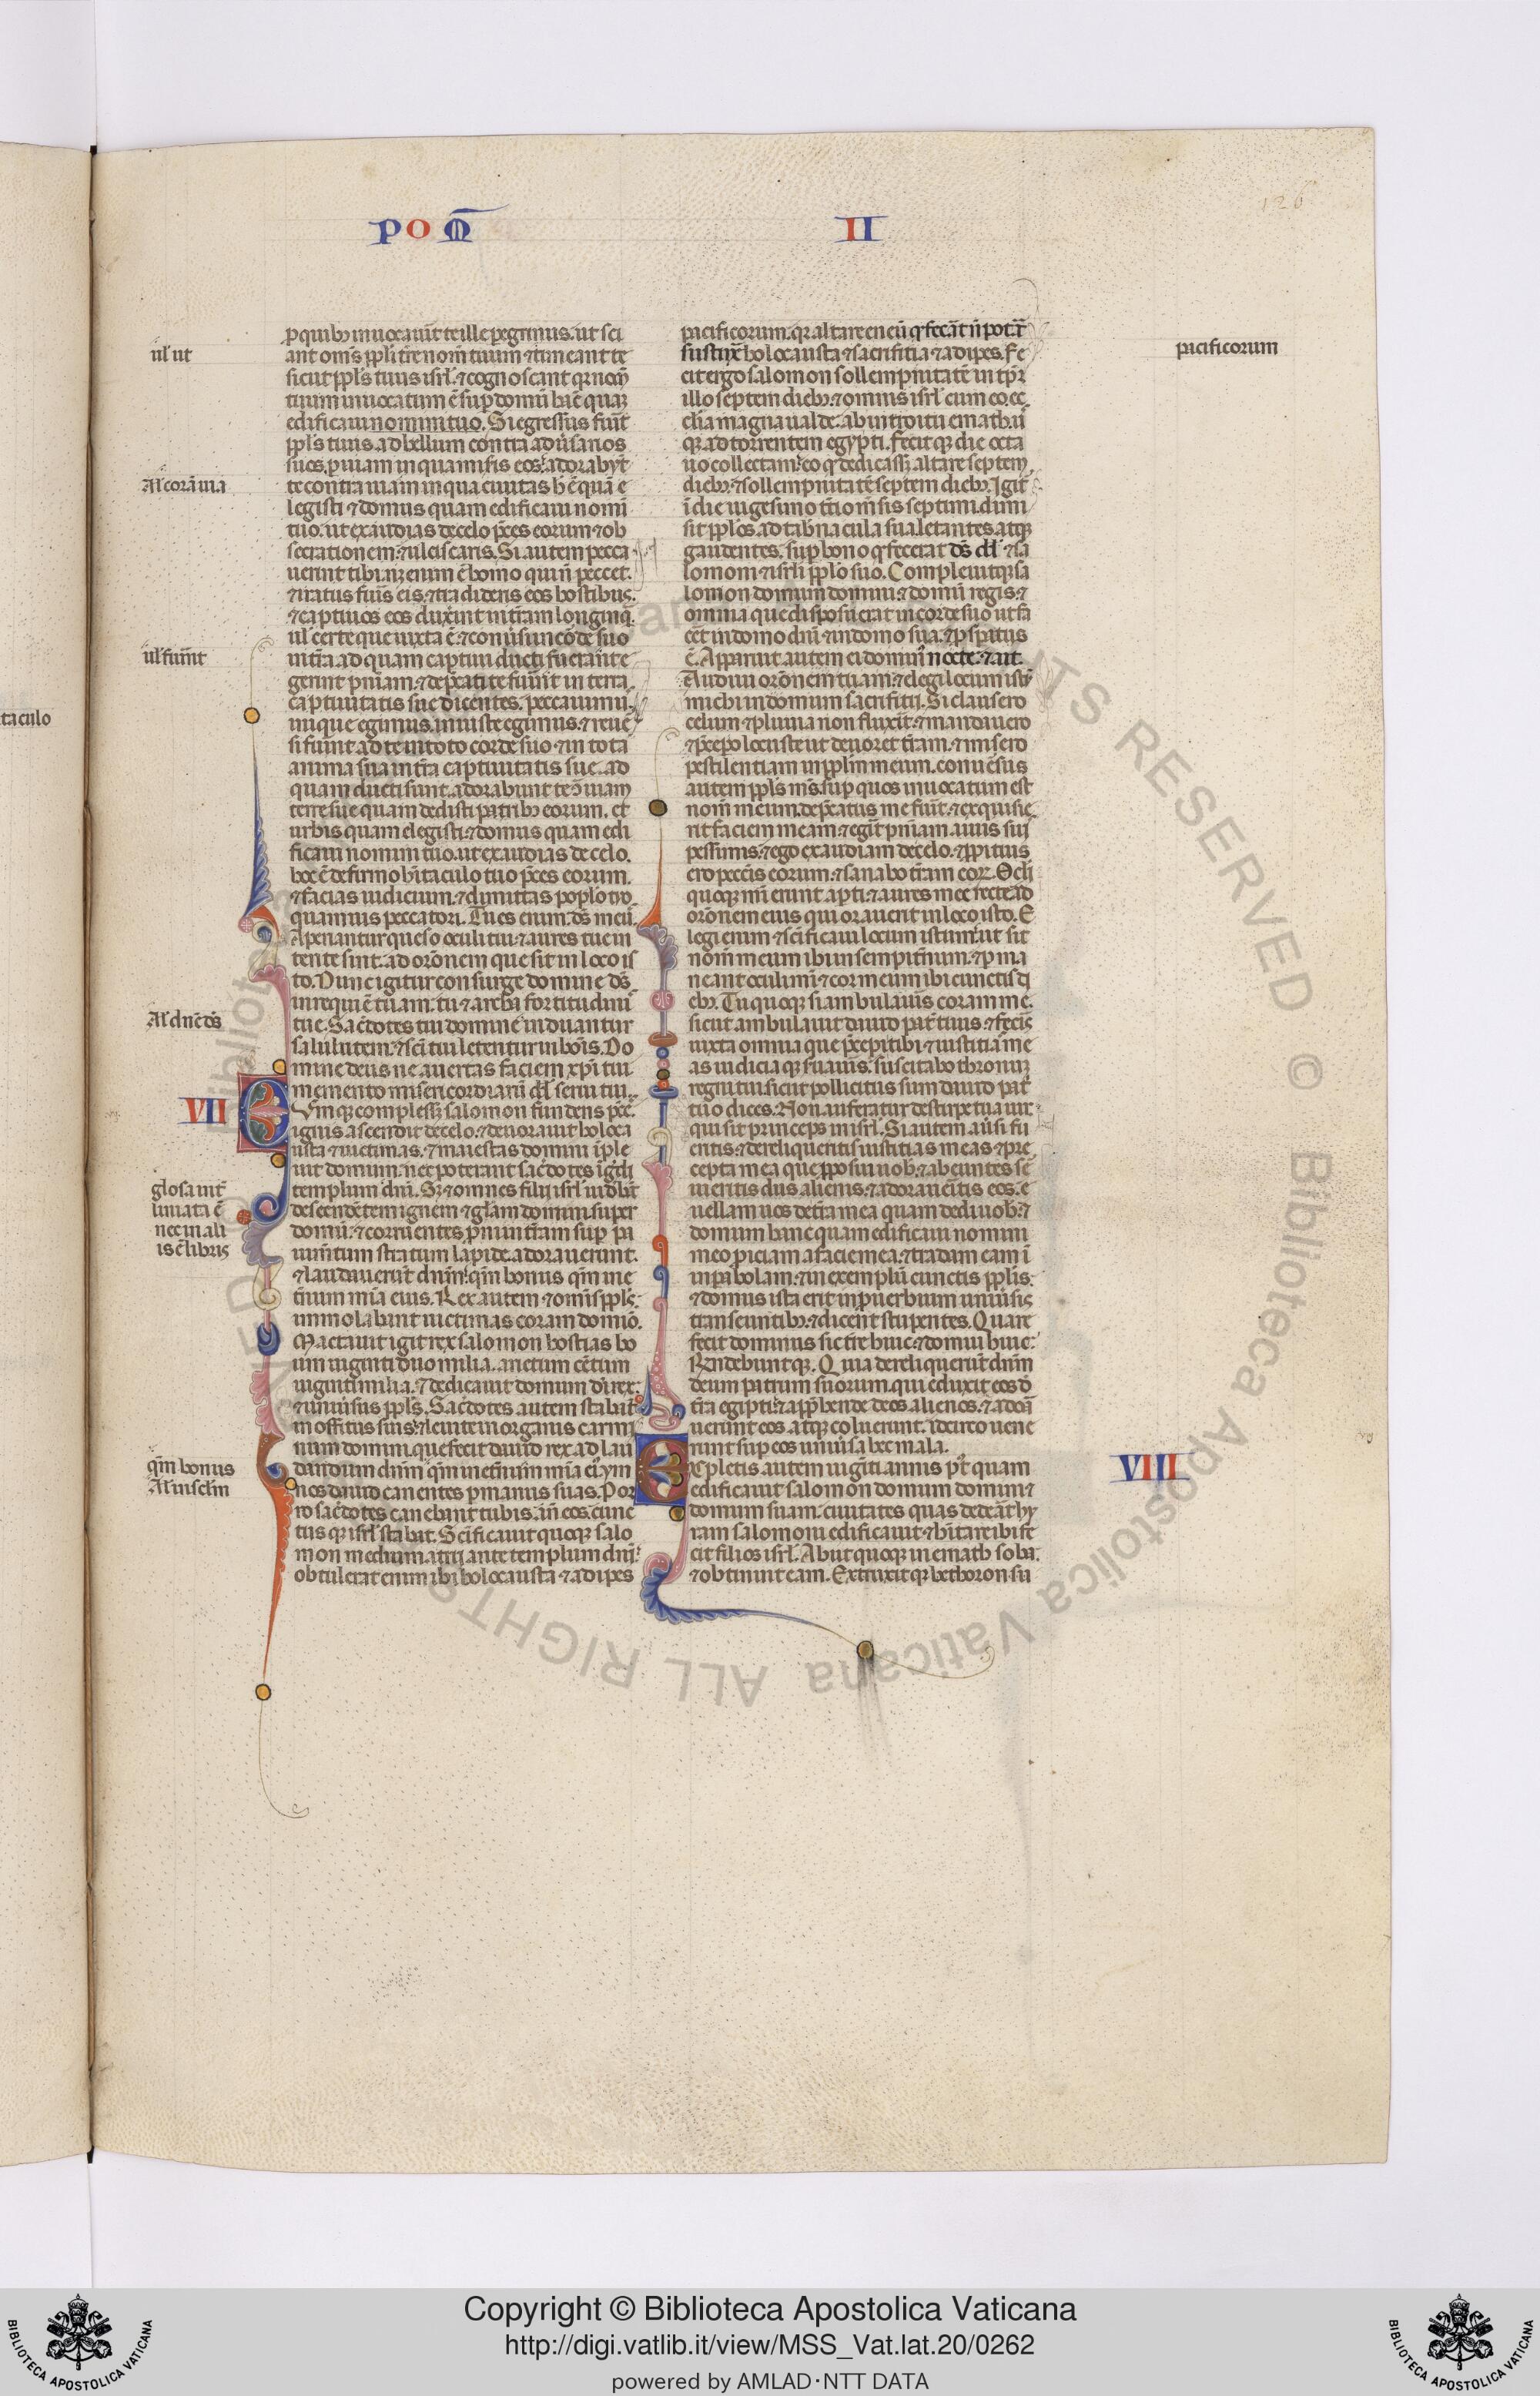 PO M
II
126
p quib; inuocauit te ille pegrinus. ut sci
ant om̄s ppli tr̄e nom̄ tuum ⁊ timeant te
sicut ppl's tuus isrl'. ⁊ cognoscant qr nom̄
tuum inuocatum ē sup domū hāc quaʒ
edificaui nomini tuo. Si egressus fuīt
ppl's tuus ad bellum contra aduīsarios
suos. p uiam in qua miſis eos. adorabūt
te contra uiam in qua ciuitas h̄ ē quā e
legisti ⁊ domus quam edificaui nomī
tuo. ut exaudias de celo p̄ces eorum ⁊ ob
secrationem. ⁊ ulciscaris. Si autem pecca
uerint tibi. nʒ enim ē homo qui n̄ peccet.
⁊ iratus fuīs eis. ⁊ tradideris eos hostibus.
⁊ captiuos eos duxīint in tr̄am longinq̄.
ul' certe que iuxta ē. ⁊ conūsi in corde suo
in tr̄a. ad quam captiui ducti fuerant. e
gerint pn̄iam. ⁊ dep̄cati te fuīnt in terra
captiuitatis sue dicentes. peccauimꝰ.
inique egimus. iniuste egimus. ⁊ reuē
si fuīnt ad te in toto corde suo. ⁊ in tota
anima sua in tr̄a captiuitatis sue. ad
quam ducti sunt. adorabunt te 9̄ uiam
terre sue quam dedisti patrib; eorum. et
urbis quam elegisti. ⁊ domus quam edi
ficaui nomini tuo. ut exaudias de celo.
hoc ē de firmo h̄itaculo tuo p̄ces eorum.
⁊ facias iudicium. ⁊ dimittas poplo tuo
quamuis peccatori. Tu es enim d̄s meus.
Aperiantur queso oculi tui. ⁊ aures tue in
tente sint. ad orōnem que sit in loco is
to. Nunc igitur consurge domine d̄s.
in requiē tuam. tu ⁊ archa fortitudinis
tue. Sac̄dotes tui domine induantur
salulutem. ⁊ sc̄i tui letentur in bonis. Do
mine deus ne auertas faciem xp̄i tui.
memento misericordiarū d̄d serui tui.
VII
Cunqʒ complesset salomon fundens p̄ces.
ignis ascendit de celo. ⁊ deuorauit holoca
usta ⁊ uictimas. ⁊ maiestas domini iple
uit domum. nec poterant sac̄dotes īg̊di
templum dn̄i. Sʒ ⁊ omnes filii isrl' uidebāt
descendētem ignem ⁊ gl̄am domini super
domū. ⁊ corruentes proni in tr̄am sup pa
uim̄tum stratum lapide. adorauerunt.
⁊ laudauerūt dnm̄. qm̄ bonus qm̄ in e
t̄num mīa eius. Rex autem ⁊ om̄is ppl's.
immolabant uictimas coram domino.
Mactauit igit rex salomon hostias bo
um uiginti duo milia. arietum cētum
uiginti milia. ⁊ dedicauit domum di rex.
⁊ uniūsus ppl's. Sac̄dotes autem stabāt
in offitiis suis. ⁊ leuite in organis carmi
num domini. que fecit dauid rex ad lau
dandum dnm̄ qm̄ in et̄num mīa ei'. ym
nos dauid canentes p manus suas. Por
ro sac̄dotes canebant tubis. an̄ eos. cunc
tus qʒ isrl' stabat. Sc̄ificauit quoqʒ salo
mon medium atrii ante templum dn̄i.
obtulerat enim ibi holocausta ⁊ adipes
pacificorum. qr altare eneū q̄ fecāt n̄ pot̄at
sustīne holocausta ⁊ sacrifitia ⁊ adipes. Fe
cit ergo salomon sollempnitatē in tp̄r
illo septem dieb;. ⁊ omnis isrl' cum eo. ec
clīa magna ualde. ab introitu emath. u
qʒ ad torrentem egypti. Fecitqʒ die octa
uo collectam. eo q̄ dedicassʒ altare septem
dieb;. ⁊ sollempnitatē septem dieb;. Igit
ī die uigesimo t̄tio mēsis septimi. dimi
sit pplos. ad tab̄nacula sua letantes. atqʒ
gaudentes. sup bono q̄ fecerat d̄s d̄d ⁊ sa
lomoni ⁊ isrli pplo suo. Compleuitqʒ sa
lomon domum domini. ⁊ domū regis. ⁊
omnia que disposuerat in corde suo ut fa
cēt in domo dn̄i ⁊ in domo sua. ⁊ pspatus
ē. Apparuit autem ei dominꝰ nocte. ⁊ ait.
Audiui orōnem tuam. ⁊ elegi locum istū
michi in domum sacrifitii. Si clausero
celum ⁊ pluuia non fluxīt. ⁊ mandauero
⁊ p̄cepo locuste ut deuoret tr̄am. ⁊ misero
pestilentiam in pplm̄ meum. conuēsus
autem ppl's m̄s. sup quos inuocatum est
nom̄ meum. dep̄catus me fuīt. ⁊ exquisie
rit faciem meam. ⁊ eg̊it pn̄iam a uiis sui
pessimis. ⁊ ego exaudiam de celo. ⁊ ppitius
ero pecc̄is eorum. ⁊ sanabo tr̄am eoꝝ. Ocli
quoqʒ m̄i erunt apti. ⁊ aures mee recte ad
orōnem eius qui orauerit in loco isto. E
legi enim ⁊ sc̄ificaui locum istum. ut sit
nom̄ meum ibi in sempit̄num. ⁊ p ma
neant oculi mī. ⁊ cor meum ibi cunctis di
eb;. Tu quoqʒ si ambulauīs coram me.
sicut ambulauit dauid pat̄ tuus. ⁊ fecīs
iuxta omnia que p̄cepi tibi. ⁊ iustitia me
as iudiciaqʒ s̄uauis. suscitabo thronuʒ
regni tui. sicut pollicitus sum dauid pat̄
tuo dices. Non auferatur de stirpe tua uir
qui sit princeps in isrl'. Si autem aūsi fu
eritis. ⁊ dereliqueritis iustitias meas ⁊ pre
cepta mea que pposui uob. ⁊ abeuntes s̄e
uieritis diis alienis. ⁊ adorauēitis eos. e
uellam uos de tr̄a mea quam dedi uob. ⁊
domum hanc quam edificaui nomini
meo. piciam a facie mea. ⁊ tradam eam ī
in pabolam. ⁊ in exemplū cunctis pplis.
⁊ domus ista erit in puerbium uniūsis
transeuntib;. ⁊ dicent stupentes. Quare
fecit dominus sic tr̄e huic. ⁊ domui huic.
Rn̄debuntqʒ. Quia dereliquerūt dnm̄
deum patrum suorum. qui eduxit eos d̄
tr̄a egipti. ⁊ app̄hende deos alienos. ⁊ adora
uerunt eos. atqʒ coluerunt. idcirco uene
runt sup eos uniūsa hec mala.
VIII
Expletis autem uiginti annis p̄t quam
edificauit salomon domum domini ⁊
domum suam. ciuitates quas dedeāt hy
ram salomoni edificauit. ⁊ h̄itare ibi fe
cit filios isrl'. Abiit quoqʒ in emath soba.
⁊ obtinuit eam. Extruxitqʒ bethoron su
ul' ut
Al' corā uia
ul' fuīnt
Al' dn̄e d̄s
glosa int̄
liniata ē
nec in ali
is ē libris
qm̄ bonus
Al' in sclm̄
pacificorum
taculo
Copyright © Biblioteca Apostolica Vaticana
http://digi.vatlib.it/view/MSS_Vat.lat.20/0262
powered by AMLAD·NTT DATA
BIBLIOTECA APOSTOLICA VATICANA
BIBLIOTECA APOSTOLICA VATICANA
© Biblioteca Apostolica Vaticana ALL RIGHTS RESERVED